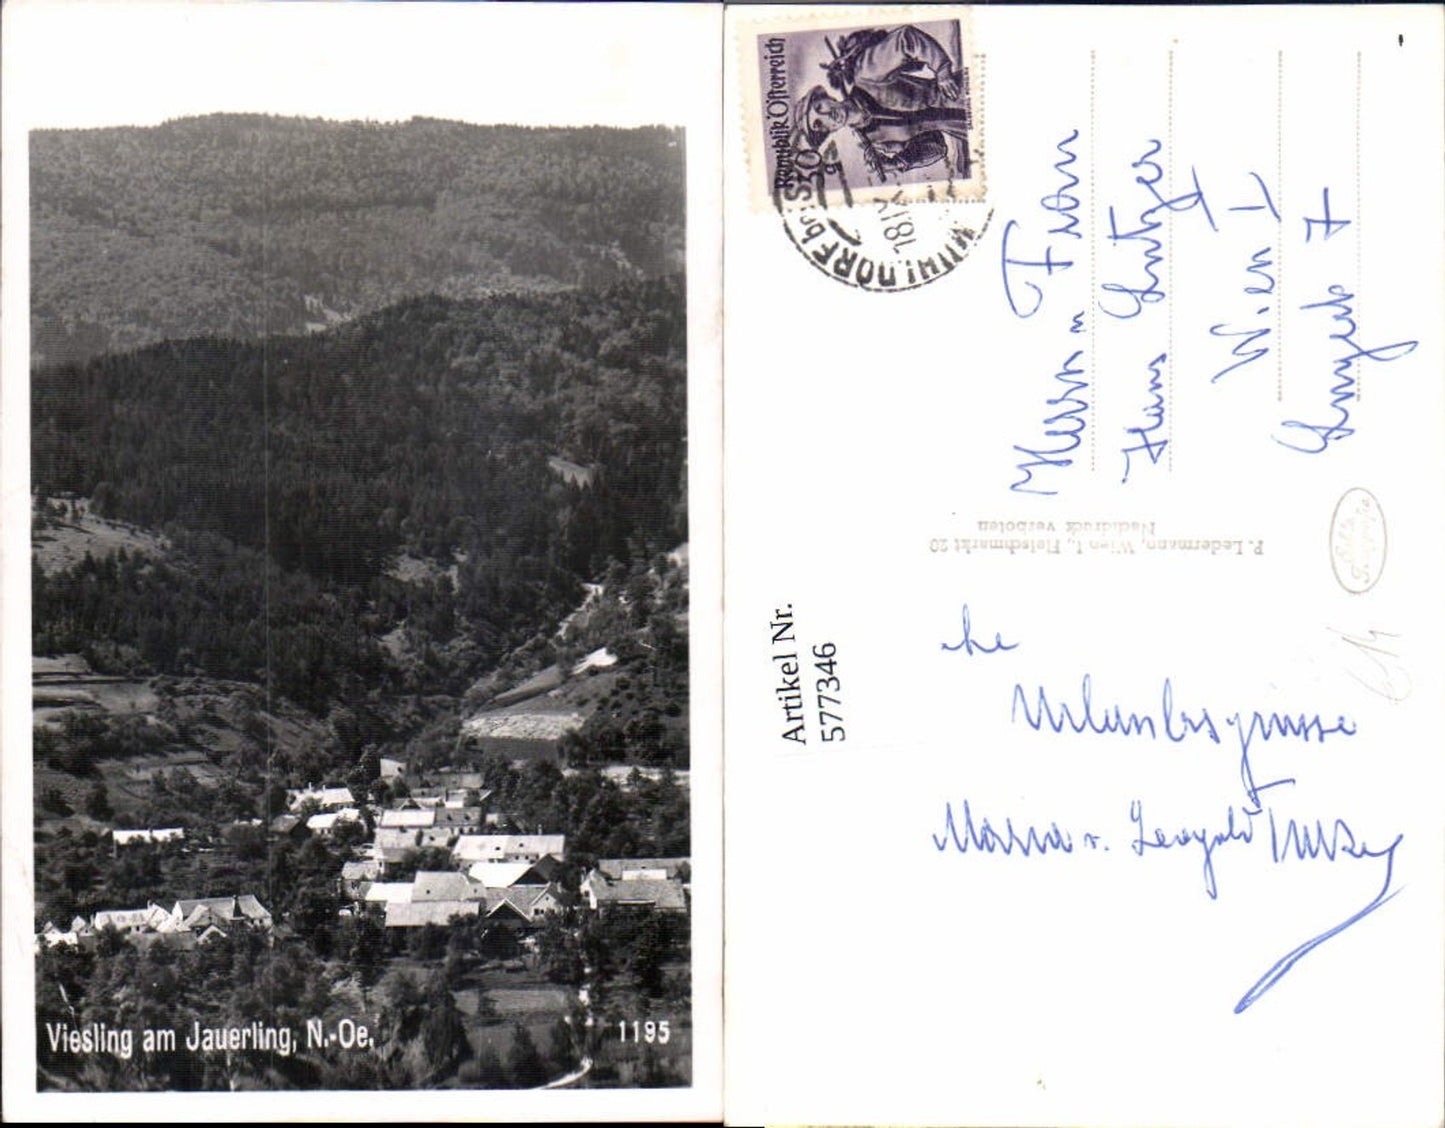 Viesling am Jauerling, N.-Oe.
1195
Republik Österreich
S 30
MÜHLDORF bei S
Herrn u Frau
Hans
Wien I
7
P. Ledermann, Wien I., Fleischmarkt 20
Nachdruck verboten
Artikel Nr.
577346
Urlaubsgrüsse
Maria u. Leopold